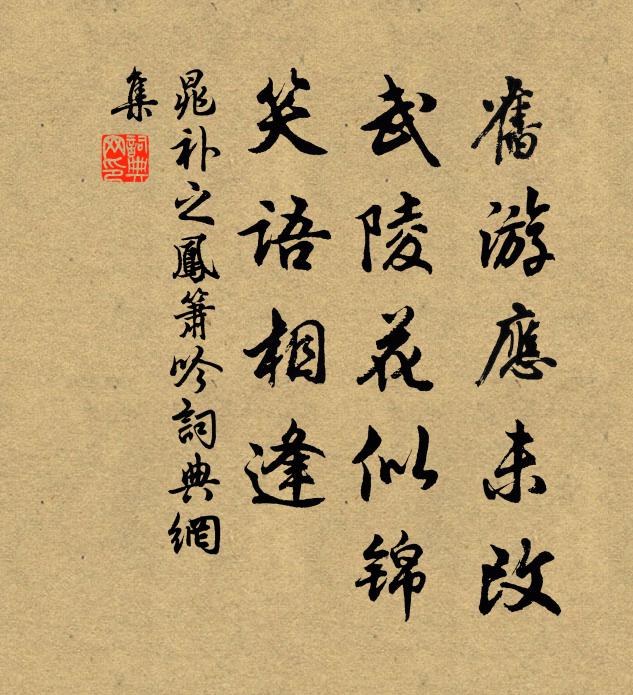 舊游應未改
武陵花似锦
笑語相逢
晁补之鳳簫吟詞典網
集
詞典
网印